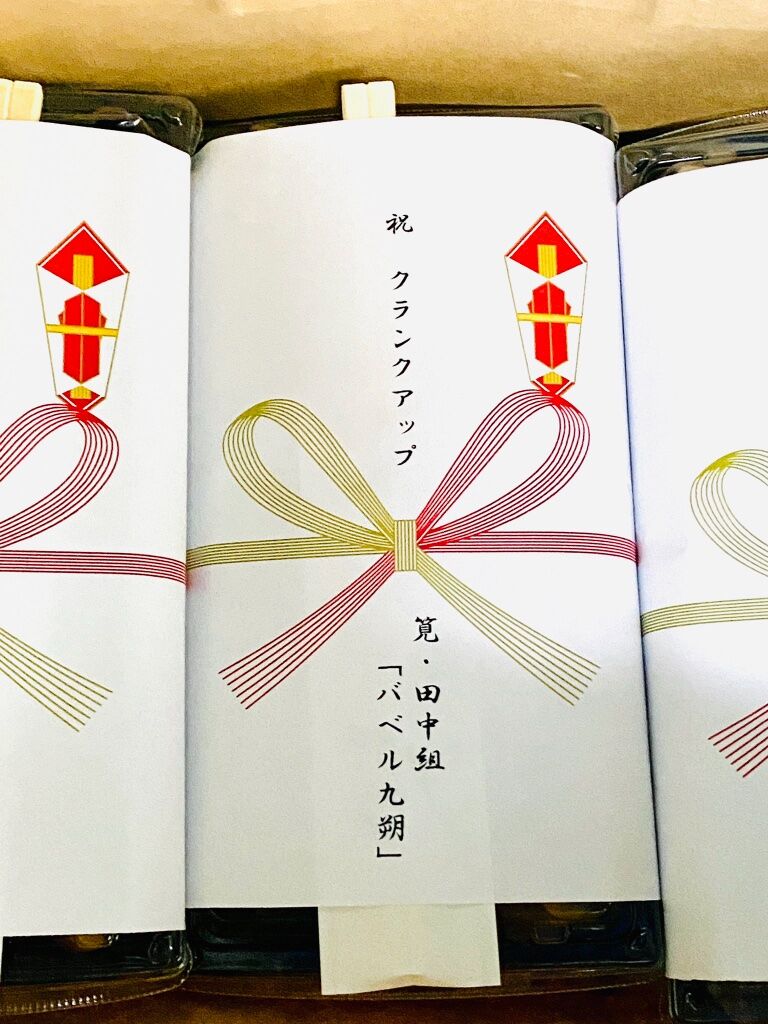 祝 クランクアップ
筧・田中組
「バベル九朔」